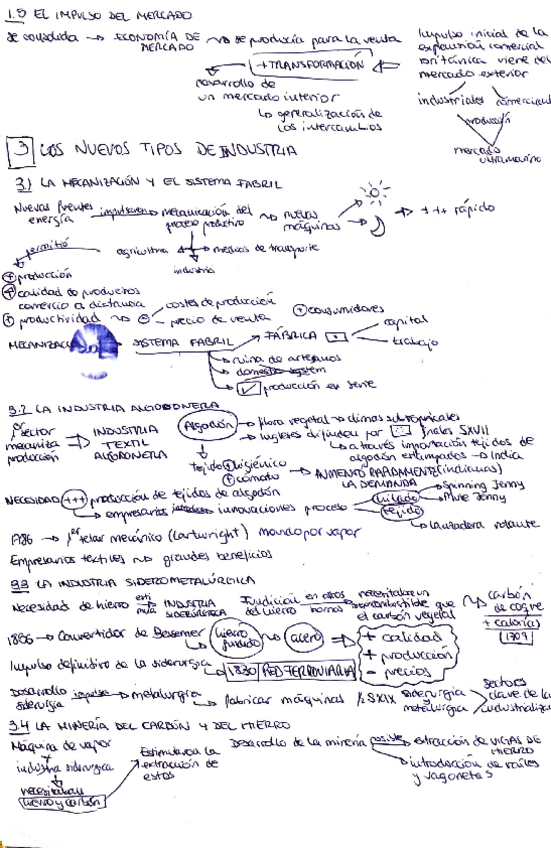 1.5 EL IMPULSO DEL MERCADO
se consolida → ECONOMÍA DE MERCADO → se producía para la venta
Impulso inicial de la
expansión comercial
británica viene del
mercado exterior
+ TRANSFORMACIÓN
desarrollo de
un mercado interior
la generalización de
los intercambios
industriales
comercial
producción
mercado
ultramarino
3 LOS NUEVOS TIPOS DE INDUSTRIA
3.1 LA MECANIZACIÓN Y EL SISTEMA FABRIL
Nuevas fuentes energía impulsaron → mecanización del proceso productivo → nuevas máquinas → +++ rápido
permitió
agricultura
medios de transporte
industria
+ producción
+ calidad de productos
comercio a distancia
+ productividad → - costes de producción
precio de venta
+ consumidores
SISTEMA FABRIL → FÁBRICA
capital
trabajo
ruina de artesanos
domestic system
producción en serie
3.2 LA INDUSTRIA ALGODONERA
1er sector mecaniza producción ⇒ INDUSTRIA TEXTIL ALGODONERA
Algodón
flora vegetal → climas subtropicales
Ingleses difunden por finales SXVII
a través importación tejidos de
algodón estampados → India
tejido + higiénico
+ cómodo
AUMENTÓ RÁPIDAMENTE (indianas)
LA DEMANDA
NECESIDAD +++ producción de tejidos de algodón
empresarios innovaciones proceso
hilado
Spinning Jenny
Mule Jenny
tejido
lanzadera volante
1786 → 1er telar mecánico (Cartwright) movido por vapor
Empresarios textiles → grandes beneficios
3.3 LA INDUSTRIA SIDEROMETALÚRGICA
Necesidad de hierro estimula INDUSTRIA SIDERÚRGICA
Fundición del hierro en altos hornos
necesitaba un
combustible que
el carbón vegetal
carbón
de coque
+ calorías
1709
1856 → Convertidor de Bessemer
hierro fundido → acero
+ calidad
+ producción
- precios
Impulso definitivo de la siderurgia
1830 RED FERROVIARIA
Desarrollo siderurgia impulsa → metalurgia → fabricar máquinas ½ SXIX
siderurgia
metalurgia
sectores
clave de la
industrializa
3.4 LA MINERÍA DEL CARBÓN Y DEL HIERRO
Máquina de vapor
+
industria siderúrgica
necesitaban
hierro y carbón
Estimulaba la
extracción de
estos
Desarrollo de la minería posible → extracción de VIGAS DE HIERRO
introducción de raíles
y vagonetas